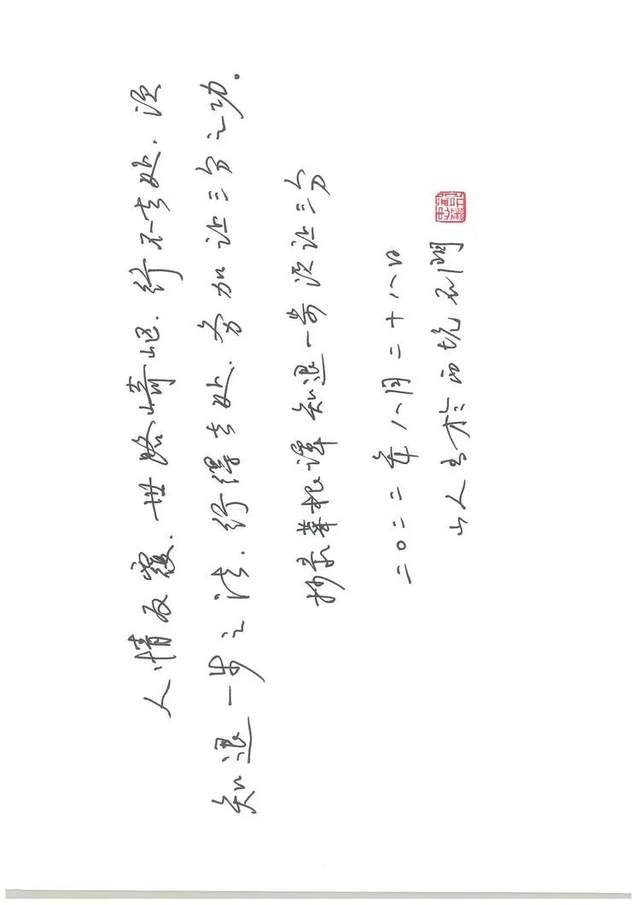 人情反覆.世路崎岖.行不去处.须
知退一步之法.行得去处.务加让三分之功。
抄录菜根谭知退一步须让三分
二〇二二年八月二十八日
山人书于西坑石门